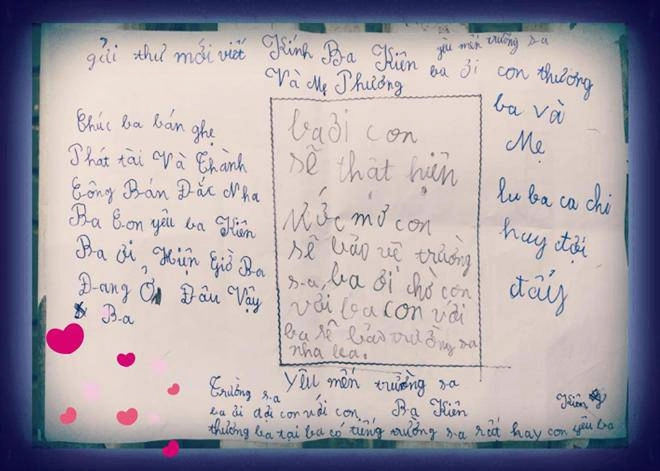 gửi thư mới viết
Kính Ba Kiên
Và Mẹ Phương
yêu mến trường sa
ba ơi con thương
ba và
Mẹ
lu ba ca chi
huy đợi
đấy
Chúc ba bán ghẹ
Phát tài Và Thành
Công Bán Đắc Nha
Ba Con yêu ba Kiên
Ba ơi Hiện Giờ Ba
Đang Ở Đâu Vậy
Ba
ba ơi con
sẽ thật hiện
Ước mơ con
sẽ bảo vệ trường
sa, ba ơi chờ con
với ba con với
ba sẽ bảo trường sa
nha ba.
Trường sa
Yêu mến trường sa
ba ơi đợi con với con,
Ba Kiên
Kiên,
thương ba tại ba có tiếng trường sa rất hay con yêu ba